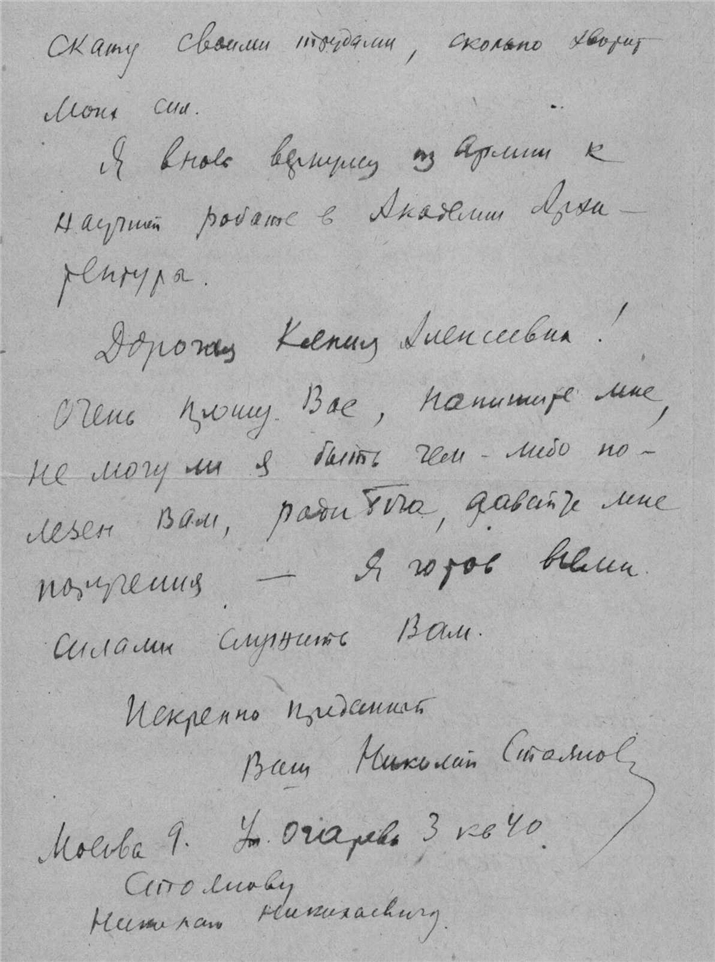 скажу своими трудами, сколько хватит
моих сил.
Я вновь вернулся из армии к
научной работе в Академии Архи-
тектуры.
Дорогая Ксения Алексеевна!
Очень прошу Вас, напишите мне,
не могу ли я быть чем-либо по-
лезен Вам, ради Бога, давайте мне
поручения — Я готов всеми
силами служить Вам.
Искренно преданный
Ваш Николай Стоянов
Москва 9. Ул. Огарева 3 кв 40.
Стоянову
Николаю Николаевичу.